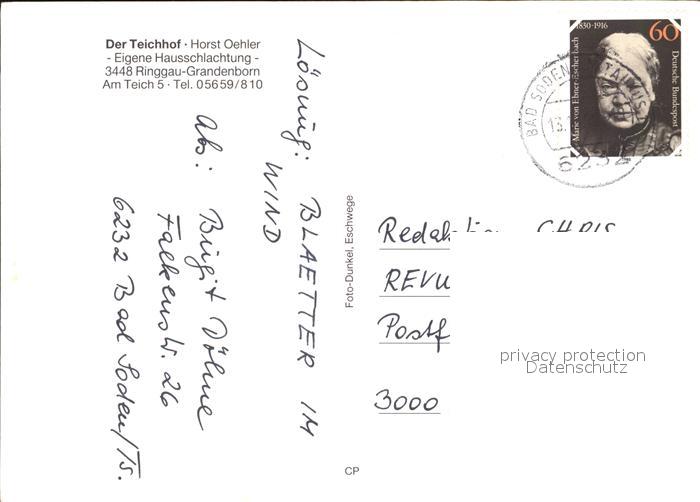 Der Teichhof · Horst Oehler
- Eigene Hausschlachtung -
3448 Ringgau-Grandenborn
Am Teich 5 · Tel. 05659/810
Lösung: BLAETTER IM
WIND
Abs: Birgit Döhne
Falkenstr. 26
6232 Bad Soden/Ts.
Foto-Dunkel, Eschwege
CP
1830-1916
60
Marie von Ebner-Eschenbach
Deutsche Bundespost
BAD SODEN
6232
Redak
REVU
Postf
3000
privacy protection
Datenschutz